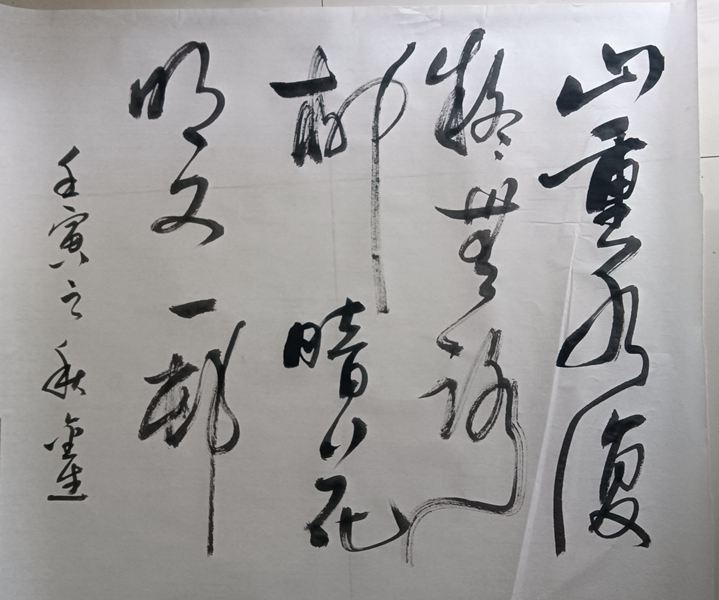 山重水復
疑無路
柳暗花
明又一邨
壬寅之秋